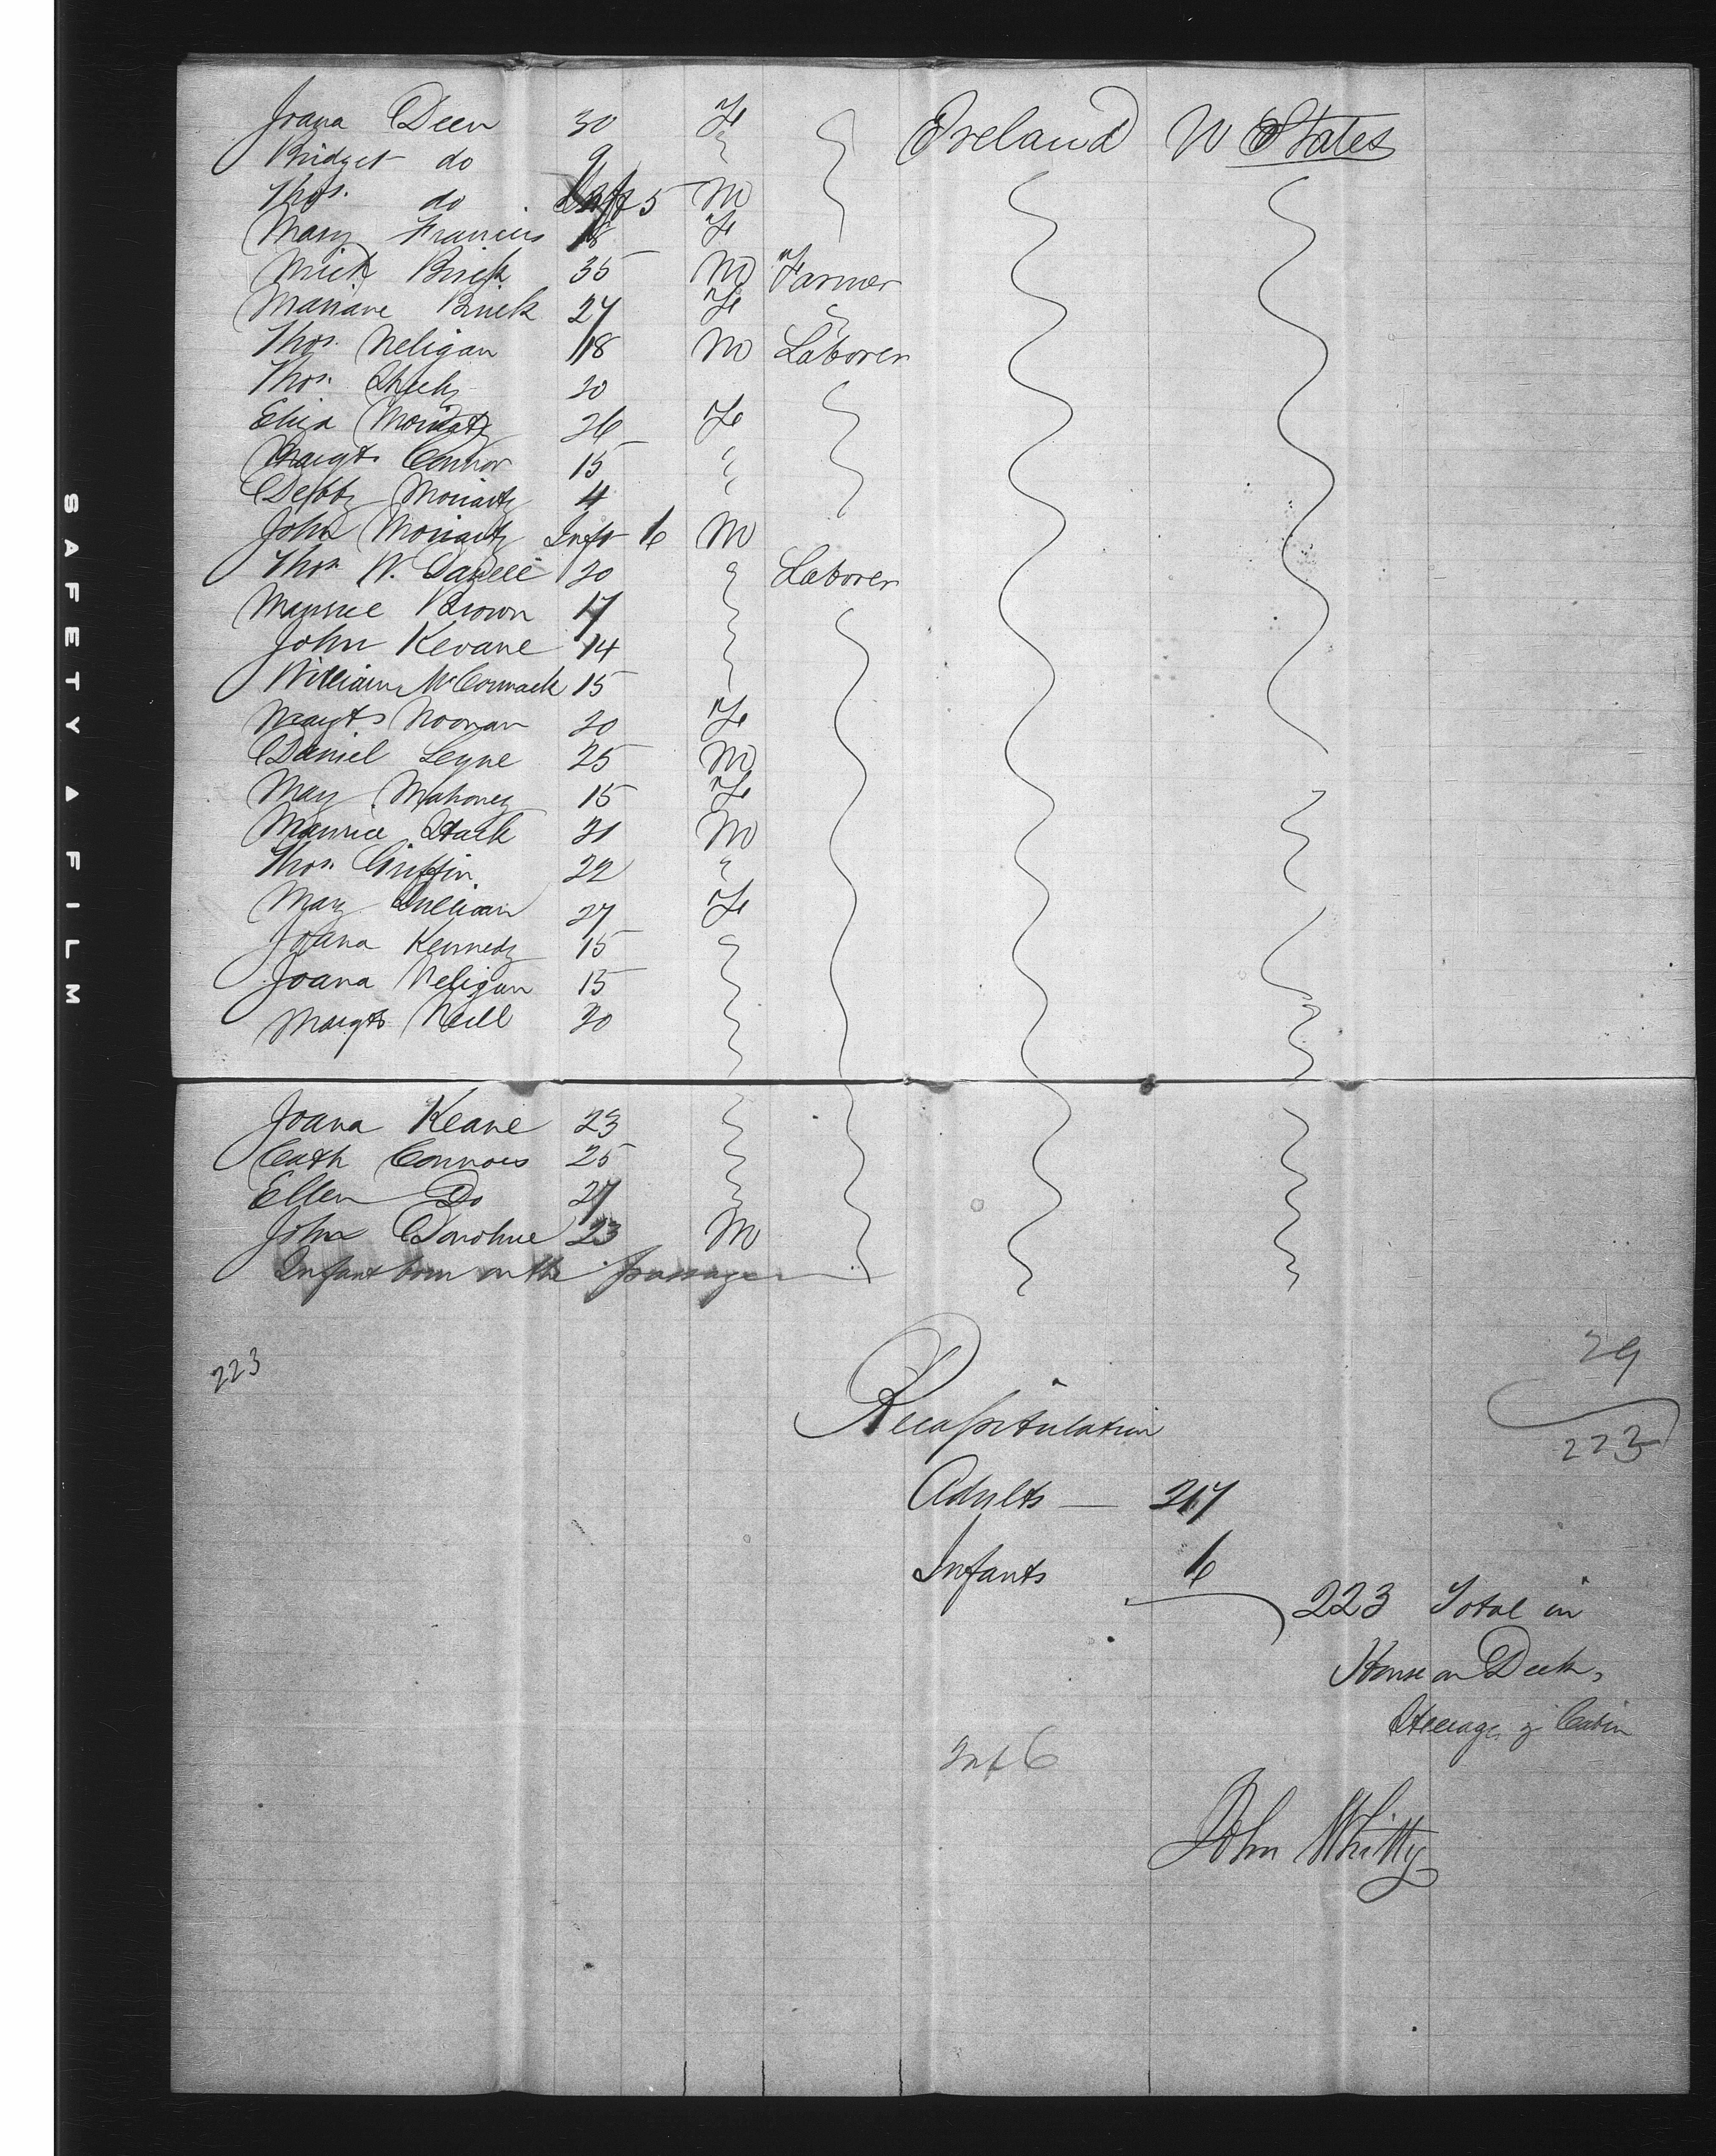 Joana Deen 30 Fe Ireland U States
Bridget do 9 "
Thos. do Inft 5 M
Mary Francis 18 Fe
Mick Brick 35 M Farmer
Mariane Brick 27 Fe "
Thos. Neligan 18 M Laborer
Thos. Sheehy 20
Eliza Moriarty 26 Fe
Margt. Connor 15 "
Debby Moriarty 4 "
John Moriarty Inft 6 M
Thos. 20 " Laborer
Maurice Brown 17
John Kevane 14
William McCormack 15
Margt. Noonan 20 Fe
Daniel Leyne 25 M
Mary Mahoney 15 Fe
Maurice Stack 21 M
Thos. Griffin 22 "
Mary 27 Fe
Joana Kennedy 15
Joana Neligan 15
Margt. Neill 20
Joana Keane 23
Cath Connors 25
Ellen Do 27
John Donohue 23 M
Infant born on the passage
223
29
223
Recapitulation
Adults — 217
Infants 6
223 Total in
House on Deck,
Steerage & Cabin
Inf 6
John Whitty
SAFETY A FILM